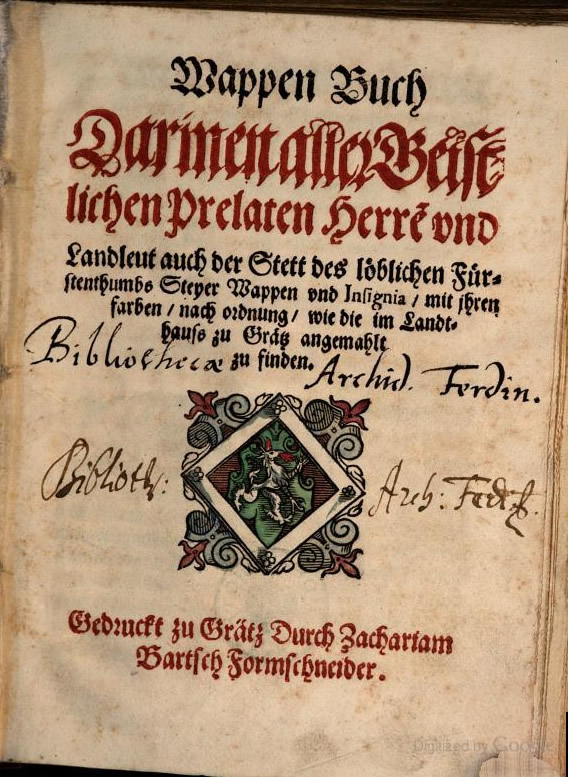 Wappen Buch
Darinen aller Geist-
lichen Prelaten Herrē vnd
Landleut auch der Stett des löblichen Für-
stenthumbs Steyer Wappen vnd Insignia / mit jhren
farben / nach ordnung / wie die im Landt-
hauss zu Grätz angemahlt
zu finden.
Bibliothecæ Archid. Ferdin.
Biblioth: Arch: Ferd
Gedruckt zu Grätz Durch Zachariam
Bartsch Formschneider.
Digitized by Google